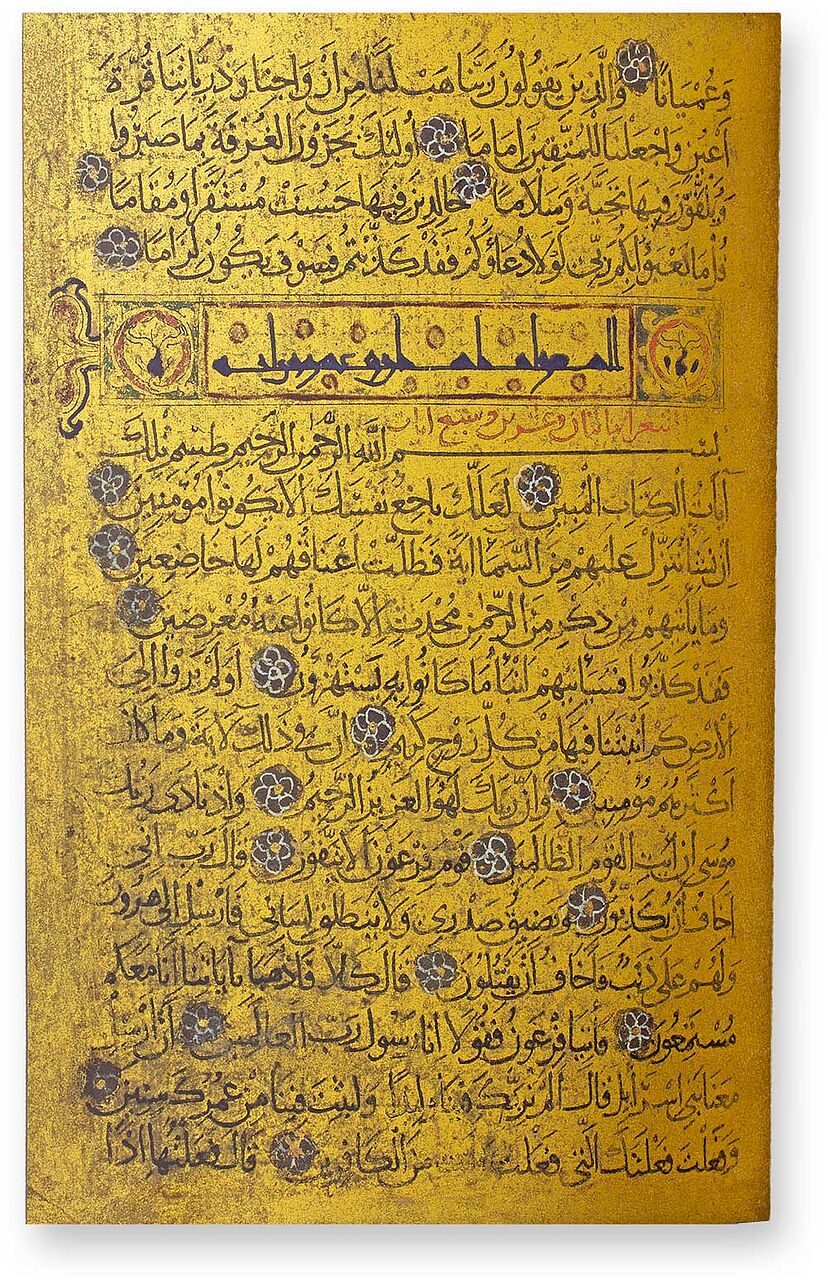 وَعُمْيَانًا وَالَّذِينَ يَقُولُونَ رَبَّنَا هَبْ لَنَا مِنْ أَزْوَاجِنَا وَذُرِّيَّاتِنَا قُرَّةَ
أَعْيُنٍ وَاجْعَلْنَا لِلْمُتَّقِينَ إِمَامًا أُولَئِكَ يُجْزَوْنَ الْغُرْفَةَ بِمَا صَبَرُوا
وَيُلَقَّوْنَ فِيهَا تَحِيَّةً وَسَلَامًا خَالِدِينَ فِيهَا حَسُنَتْ مُسْتَقَرًّا وَمُقَامًا
قُلْ مَا يَعْبَؤُا بِكُمْ رَبِّي لَوْلَا دُعَاؤُكُمْ فَقَدْ كَذَّبْتُمْ فَسَوْفَ يَكُونُ لِزَامًا
الشعرا مايتان وعشرين وسبع ايات
بسم الله الرحمن الرحيم طسم تلك
آيَاتُ الْكِتَابِ الْمُبِينِ لَعَلَّكَ بَاخِعٌ نَفْسَكَ أَلَّا يَكُونُوا مُؤْمِنِينَ
إِنْ نَشَأْ نُنَزِّلْ عَلَيْهِمْ مِنَ السَّمَاءِ آيَةً فَظَلَّتْ أَعْنَاقُهُمْ لَهَا خَاضِعِينَ
وَمَا يَأْتِيهِمْ مِنْ ذِكْرٍ مِنَ الرَّحْمَنِ مُحْدَثٍ إِلَّا كَانُوا عَنْهُ مُعْرِضِينَ
فَقَدْ كَذَّبُوا فَسَيَأْتِيهِمْ أَنْبَاءُ مَا كَانُوا بِهِ يَسْتَهْزِؤُنَ أَوَلَمْ يَرَوْا إِلَى
الْأَرْضِ كَمْ أَنْبَتْنَا فِيهَا مِنْ كُلِّ زَوْجٍ كَرِيمٍ إِنَّ فِي ذَلِكَ لَآيَةً وَمَا كَانَ
أَكْثَرُهُمْ مُؤْمِنِينَ وَإِنَّ رَبَّكَ لَهُوَ الْعَزِيزُ الرَّحِيمُ وَإِذْ نَادَى رَبُّكَ
مُوسَى أَنِ ائْتِ الْقَوْمَ الظَّالِمِينَ قَوْمَ فِرْعَوْنَ أَلَا يَتَّقُونَ قَالَ رَبِّ إِنِّي
أَخَافُ أَنْ يُكَذِّبُونِ وَيَضِيقُ صَدْرِي وَلَا يَنْطَلِقُ لِسَانِي فَأَرْسِلْ إِلَى هَرُونَ
وَلَهُمْ عَلَيَّ ذَنْبٌ فَأَخَافُ أَنْ يَقْتُلُونِ قَالَ كَلَّا فَاذْهَبَا بِآيَاتِنَا إِنَّا مَعَكُمْ
مُسْتَمِعُونَ فَأْتِيَا فِرْعَوْنَ فَقُولَا إِنَّا رَسُولُ رَبِّ الْعَالَمِينَ أَنْ أَرْسِلْ
مَعَنَا بَنِي إِسْرَائِيلَ قَالَ أَلَمْ نُرَبِّكَ فِينَا وَلِيدًا وَلَبِثْتَ فِينَا مِنْ عُمُرِكَ سِنِينَ
وَفَعَلْتَ فَعْلَتَكَ الَّتِي فَعَلْتَ وَأَنْتَ مِنَ الْكَافِرِينَ قَالَ فَعَلْتُهَا إِذًا